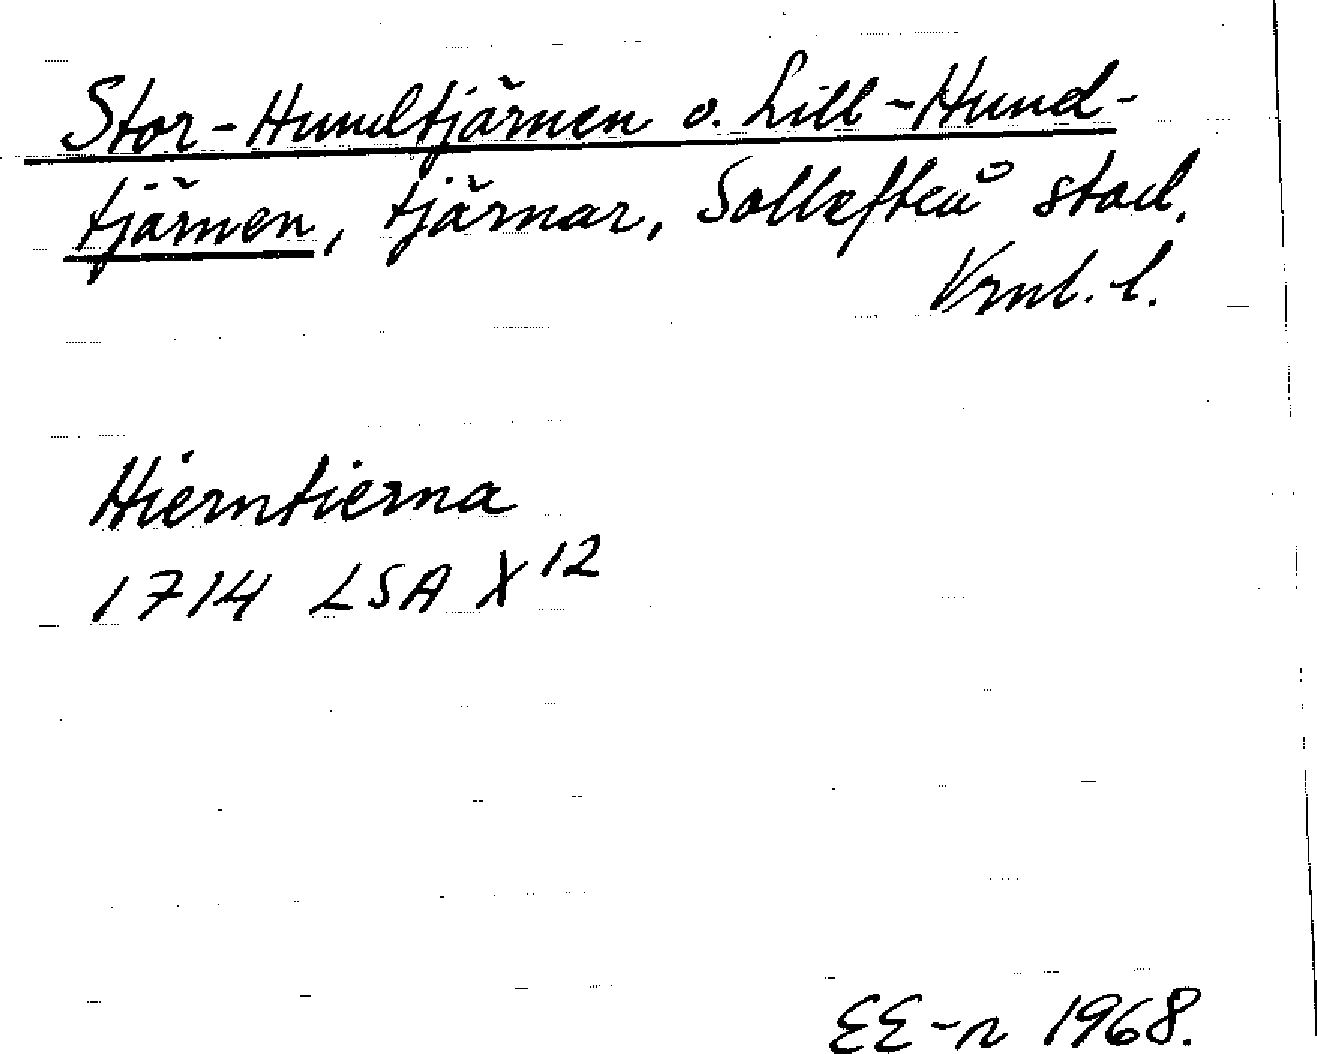 Stor-Hundtjärnen o. Lill-Hund-
tjärnen, tjärnar, Sollefteå stad.
Vrml. l.
Hierntierna
1714 LSA X 12
EE-n 1968.